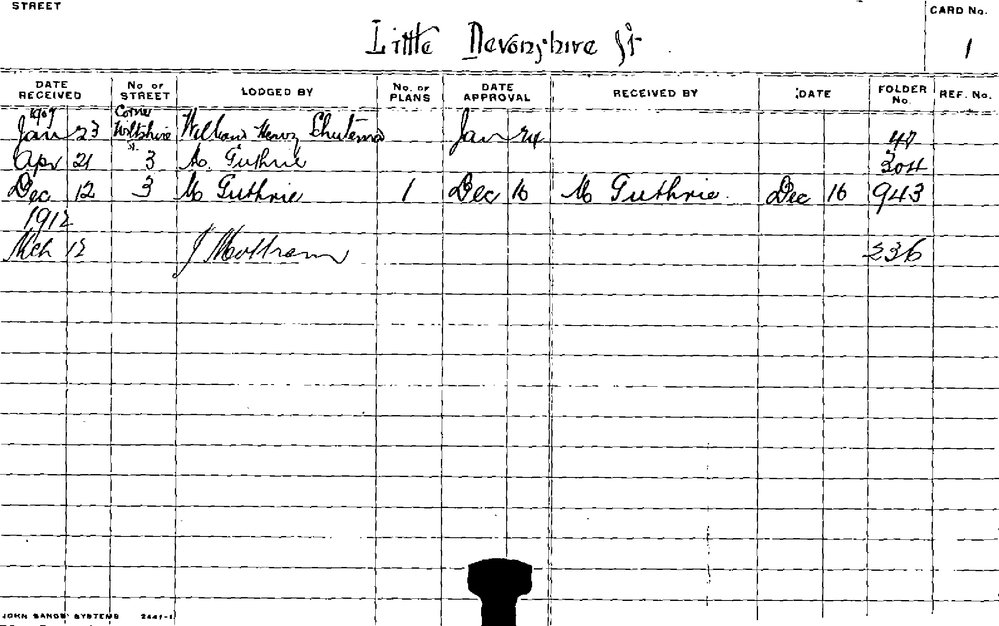 STREET
CARD No.
Little Devonshire St.
1
DATE RECEIVED No OF STREET LODGED BY No. OF PLANS DATE APPROVAL RECEIVED BY DATE FOLDER No. REF. No.
1909 Corner
Jan 23 Wiltshire St. William Henry Jan 24 47
Apr 21 3 M. Guthrie 304
Dec 12 3 M Guthrie 1 Dec 16 M Guthrie. Dec 16 943
1912
Mch 12 J Mottram 236
JOHN SANDS' SYSTEMS 2441-1